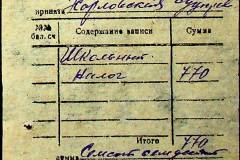 принята Карловский
№№ бал. сч Содержание записи Сумма
Школьный
Налог 770
Итого 770
сумма Семьсот семьдесят